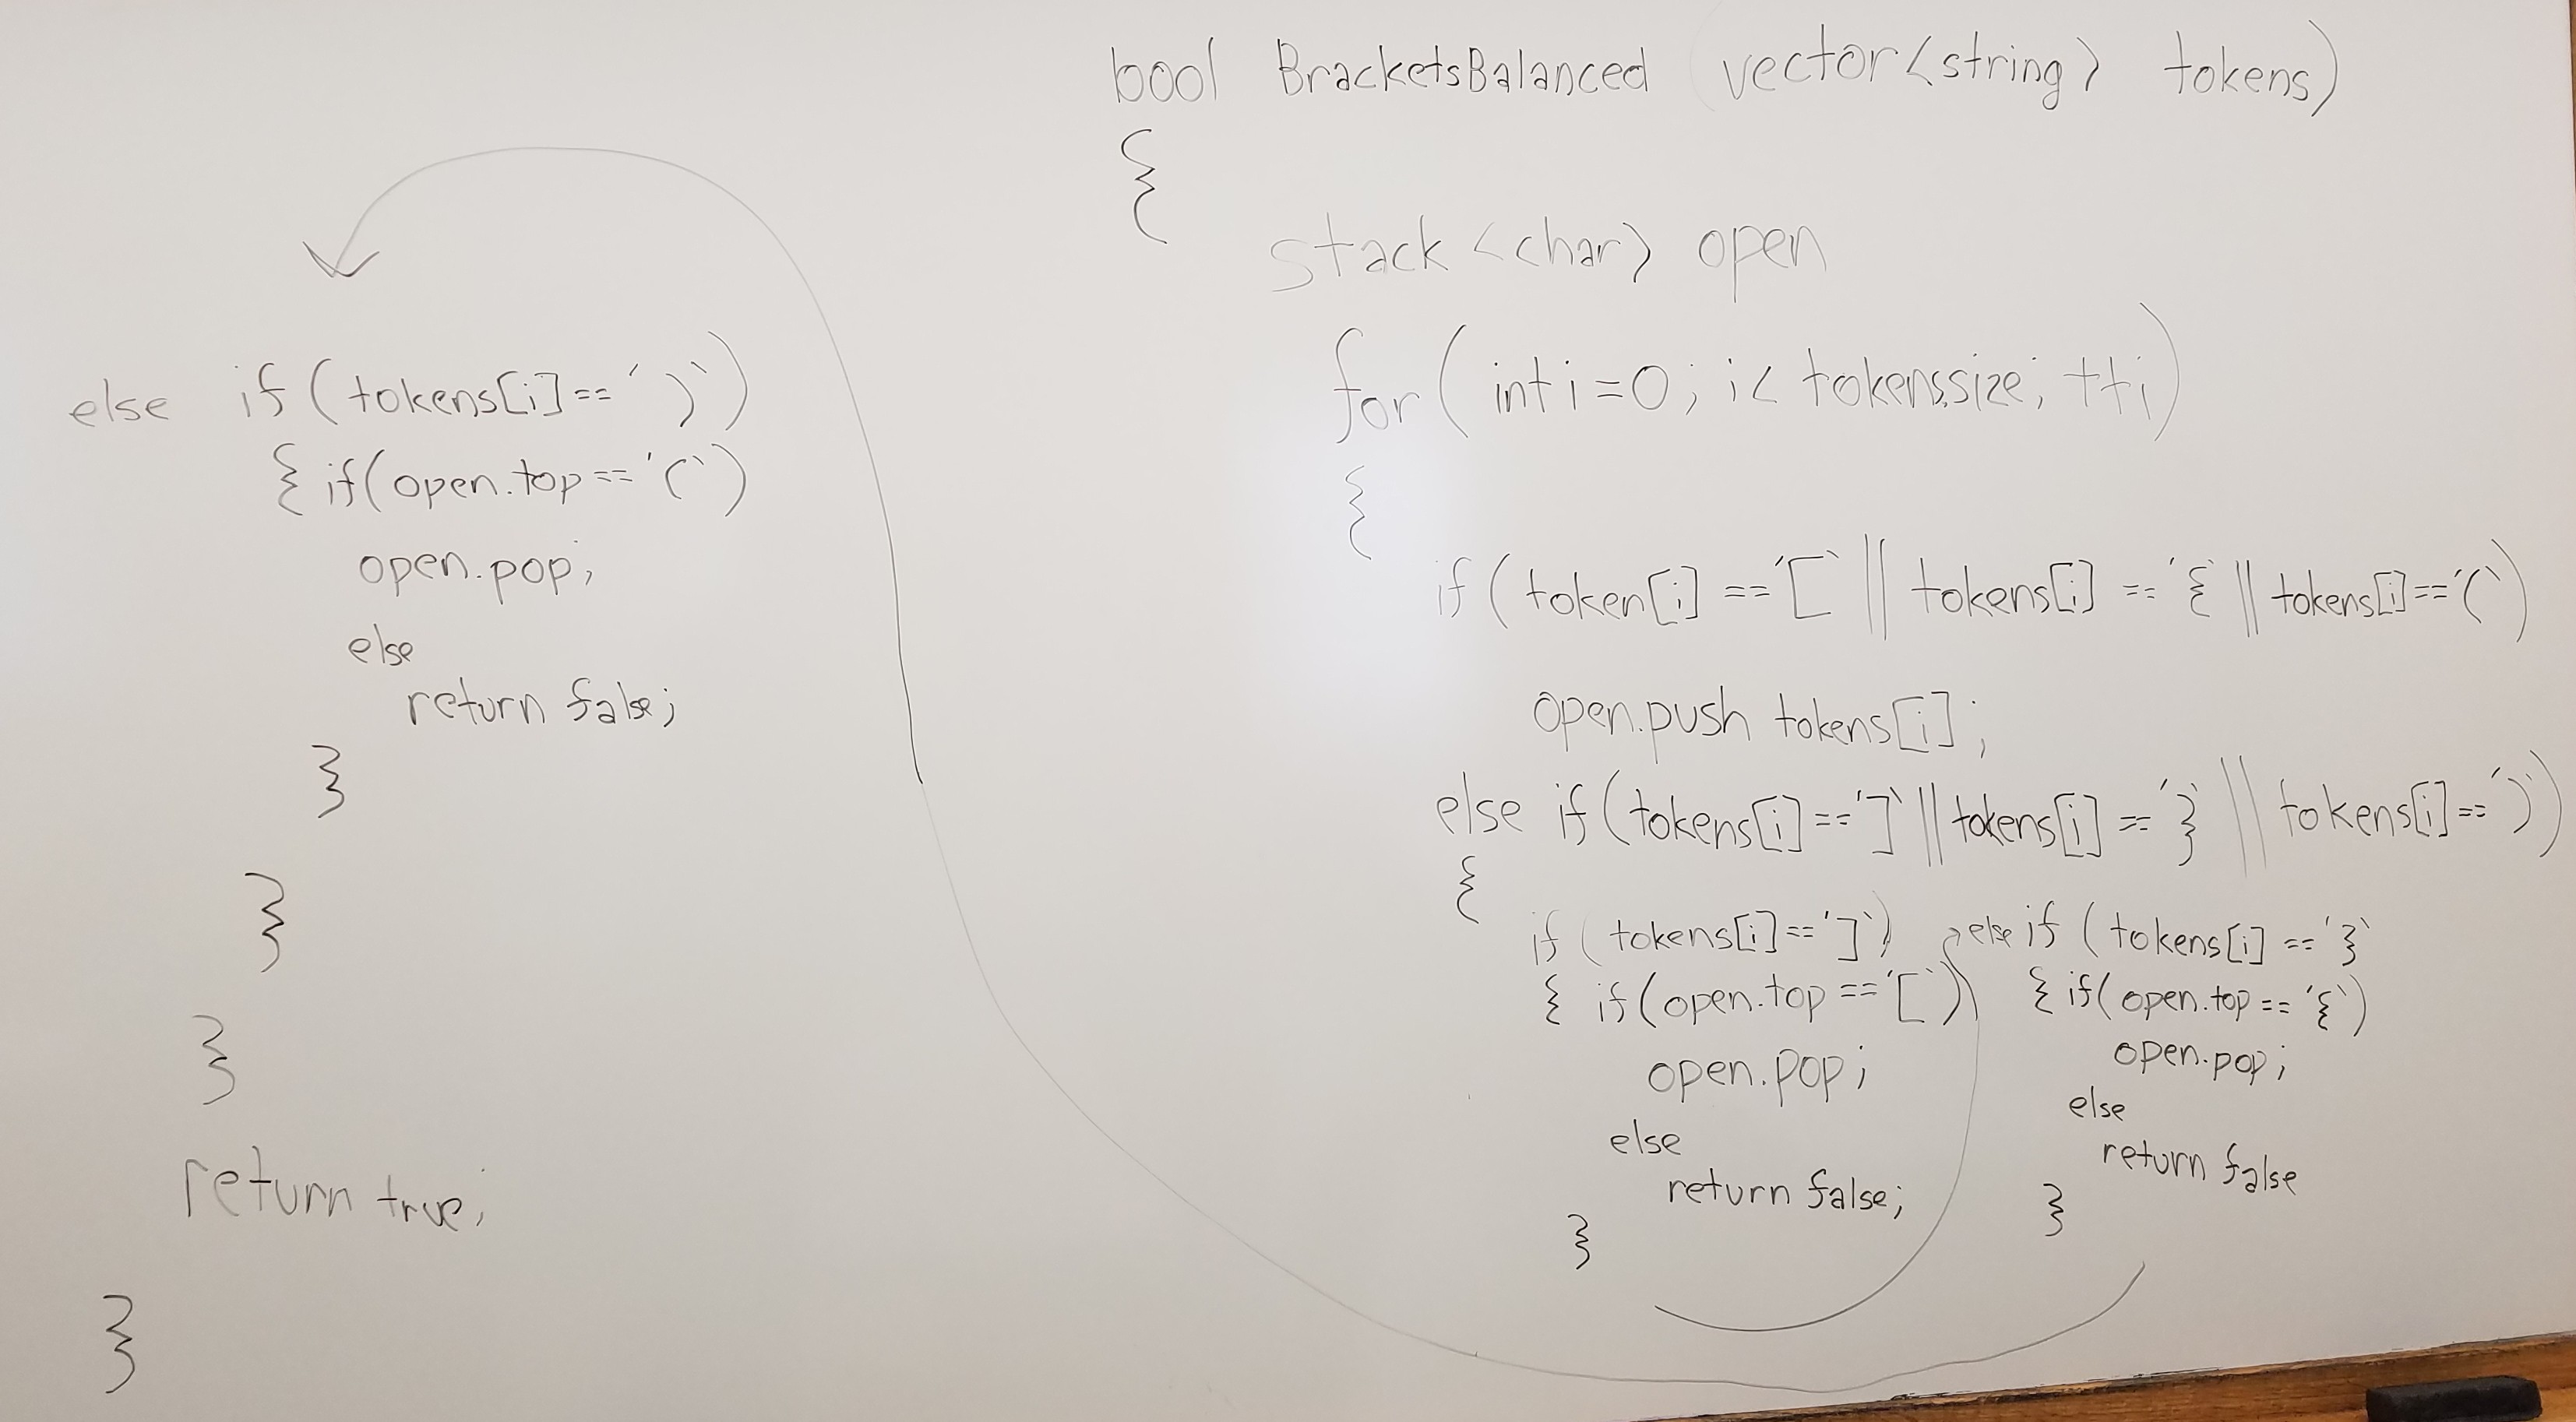 bool BracketsBalanced (vector<string> tokens)
{
stack <char> open
for( int i=0; i< tokens.size; ++i)
{
if (token[i] =='[` || tokens[i] == '{` || tokens[i]=='(`)
open.push tokens[i];
else if (tokens[i]==']` || tokens[i] == '}` || tokens[i]==')`)
{
if ( tokens[i]==']`)
{ if(open.top =='[`)
open.pop;
else
return false;
}
else if ( tokens[i] == '}`
{ if( open.top == '{`)
open.pop;
else
return false
}
else if (tokens[i]== ')`)
{ if(open.top == '(`)
open.pop;
else
return false;
}
}
}
return true;
}